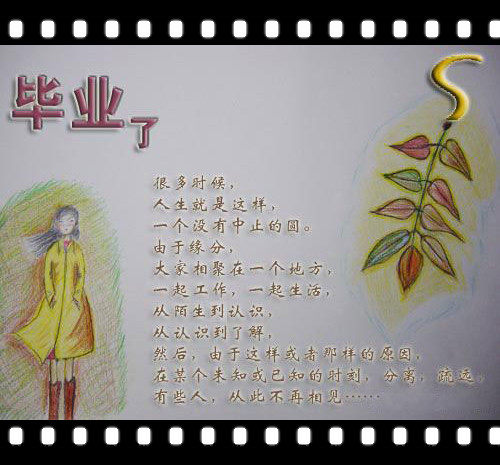 毕业了
很多时候，
人生就是这样，
一个没有中止的圆。
由于缘分，
大家相聚在一个地方，
一起工作，一起生活，
从陌生到认识，
从认识到了解，
然后，由于这样或者那样的原因，
在某个未知或已知的时刻，分离，疏远，
有些人，从此不再相见……